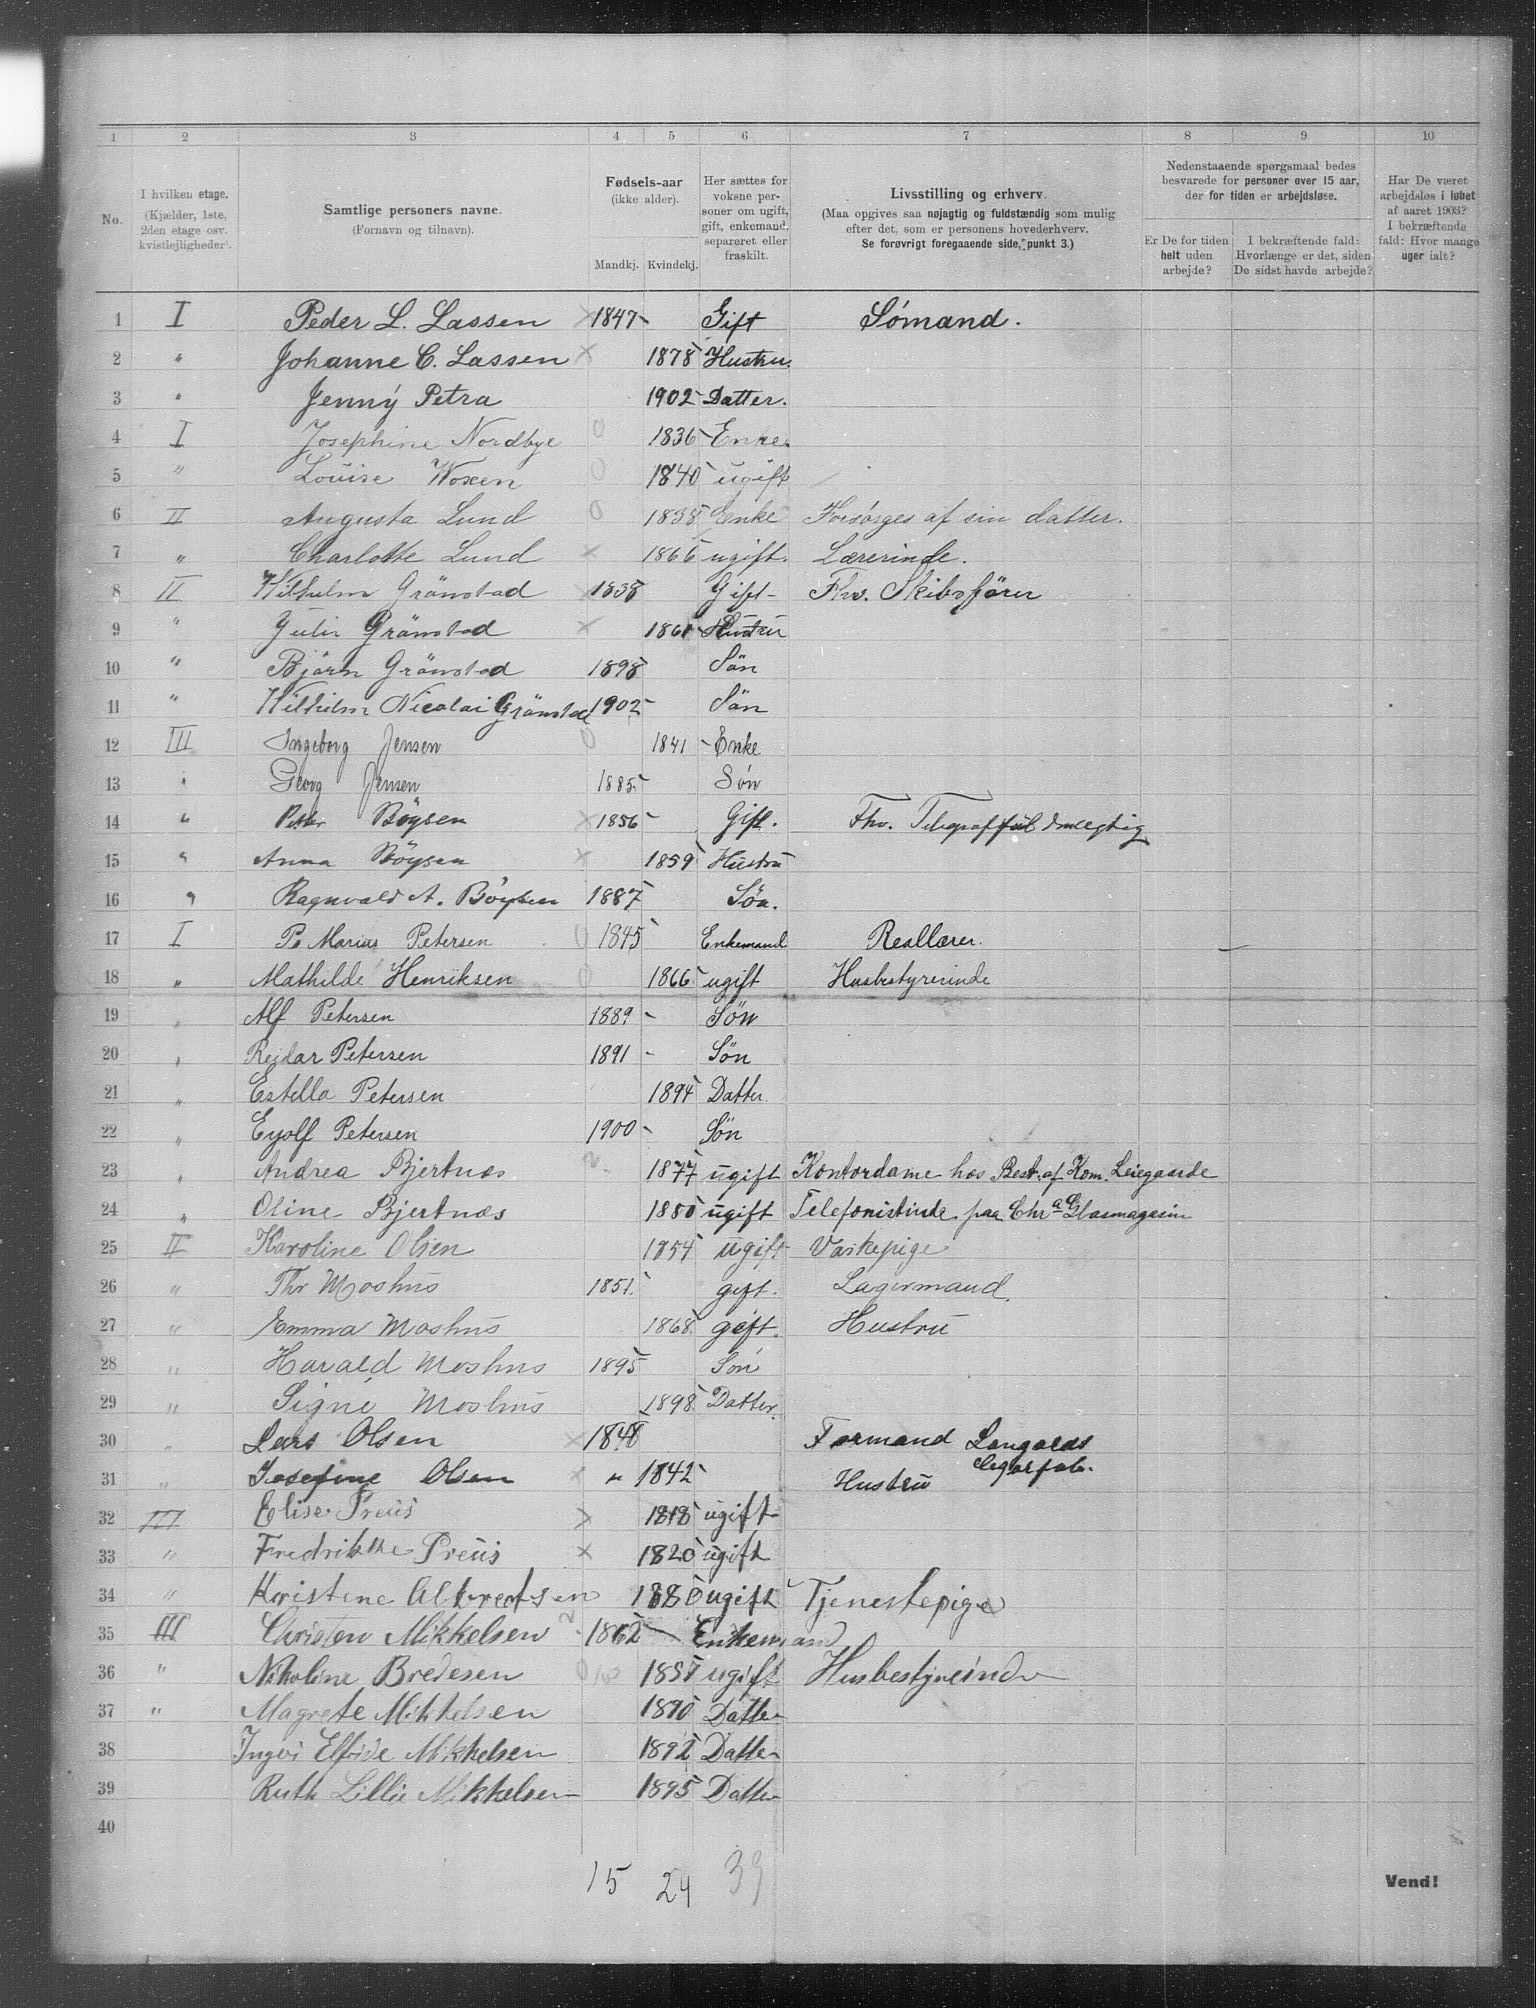 1 2 3 4 5 6 7 8 9 10
No. I hvilken etage. (Kjælder, 1ste, 2den etage osv. kvistlejligheder). Samtlige personers navne. (Fornavn og tilnavn). Fødsels-aar (ikke alder). Mandkj. Kvindekj. Her sættes for voksne personer om ugift, gift, enkemand, separeret eller fraskilt. Livsstilling og erhverv. (Maa opgives saa nøjagtig og fuldstændig som mulig efter det, som er personens hovederhverv. Se forøvrigt foregaaende side, punkt 3.) Nedenstaaende spørgsmaal bedes besvarede for personer over 15 aar, der for tiden er arbejdsløse. Er De for tiden helt uden arbejde? I bekræftende fald: Hvorlænge er det, siden De sidst havde arbejde? Har De været arbejdsløs i løbet af aaret 1903? I bekræftende fald: Hvor mange uger ialt?
1 I Peder L. Lassen × 1847 - Gift Sömand.
2 " Johanne C. Lassen × 1878 Hustru.
3 " Jenny Petra 1902 - Datter.
4 I Josephine Nordbye 0 1836 - Enke.
5 " Louise Woxen 0 1840 - ugift
6 II Augusta Lund 0 1838 Enke Forsørges af sin datter.
7 " Charlotte Lund × 1866 ugift. Lærerinde.
8 II Wilhelm Grönstad × 1838 Gift - Fhv. Skibsförer
9 " Julie Grönstad × 1861 - Hustru
10 " Björn Grönstad 1898 Sön
11 " Wilhelm Nicolai Grönstad 1902 - Sön
12 III Ingeborg Jensen 0 1841 - Enke
13 " Georg Jensen 1885 - Søn
14 " Peter Böysen × 1856 - Gift. Fhv. Telegraffuldmægtig
15 " Anna Böysen × 1859 Hustru
16 " Ragnvald A. Böysen 1887 Sön.
17 I P. Marius Petersen 0 1845 Enkemand Reallærer.
18 " Mathilde Henriksen 0 1866 ugift Husbestyrerinde
19 " Alf Petersen 1889 - Sön
20 " Reidar Petersen 1891 - Sön
21 " Estella Petersen 1894 Datter
22 " Eyolf Petersen 1900 - Sön
23 " Andrea Bjertnæs 2. 1877 ugift Kontordame hos Best. af Kom. Leiegaarde
24 " Oline Bjertnæs 1880 ugift Telefonistinde paa Chr.a Glasmagasin
25 II Karoline Olsen 1854 ugift Vaskepige
26 " Thr Moshus 1851. gift. Lagermand.
27 " Emma Moshus 1868 gift. Hustru
28 " Harald Moshus 1895 Søn
29 " Signe Moshus 1898 Datter.
30 " Lars Olsen × 1848 Formand Langaards
31 " Josefine Olsen × " 1842 - Hustru Cigarfab.
32 III Elise Preus × 1818 ugift
33 " Fredrikke Preus × 1820 ugift
34 " Kristine Albretsen 1880 ugift Tjenestepige
35 III Christen Mikkelsen 2 1862 - Enkemand
36 " Nikoline Bredesen 0 1857 ugift Husbestyreinde
37 " Magrete Mikkelsen 1890 Datter
38 Ingvi Elfride Mikkelsen 1892 Datter
39 Ruth Lillie Mikkelsen 1895 Datter
40
15 24 39
Vend!